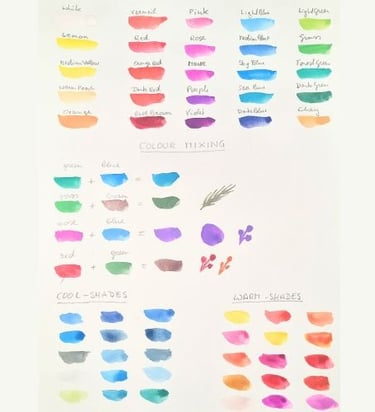 White Vermeil Pink Light Blue Light Green
Lemon Red Rose Medium Blue Grass
Medium Yellow Orange Red Mauve Sky Blue Forest Green
Warm Peach Dark Red Purple Sea Blue Dark Green
Orange Brown Violet Dark Blue
COLOUR MIXING
green + blue =
+ =
rose + blue =
red + green =
COOL-SHADES WARM-SHADES